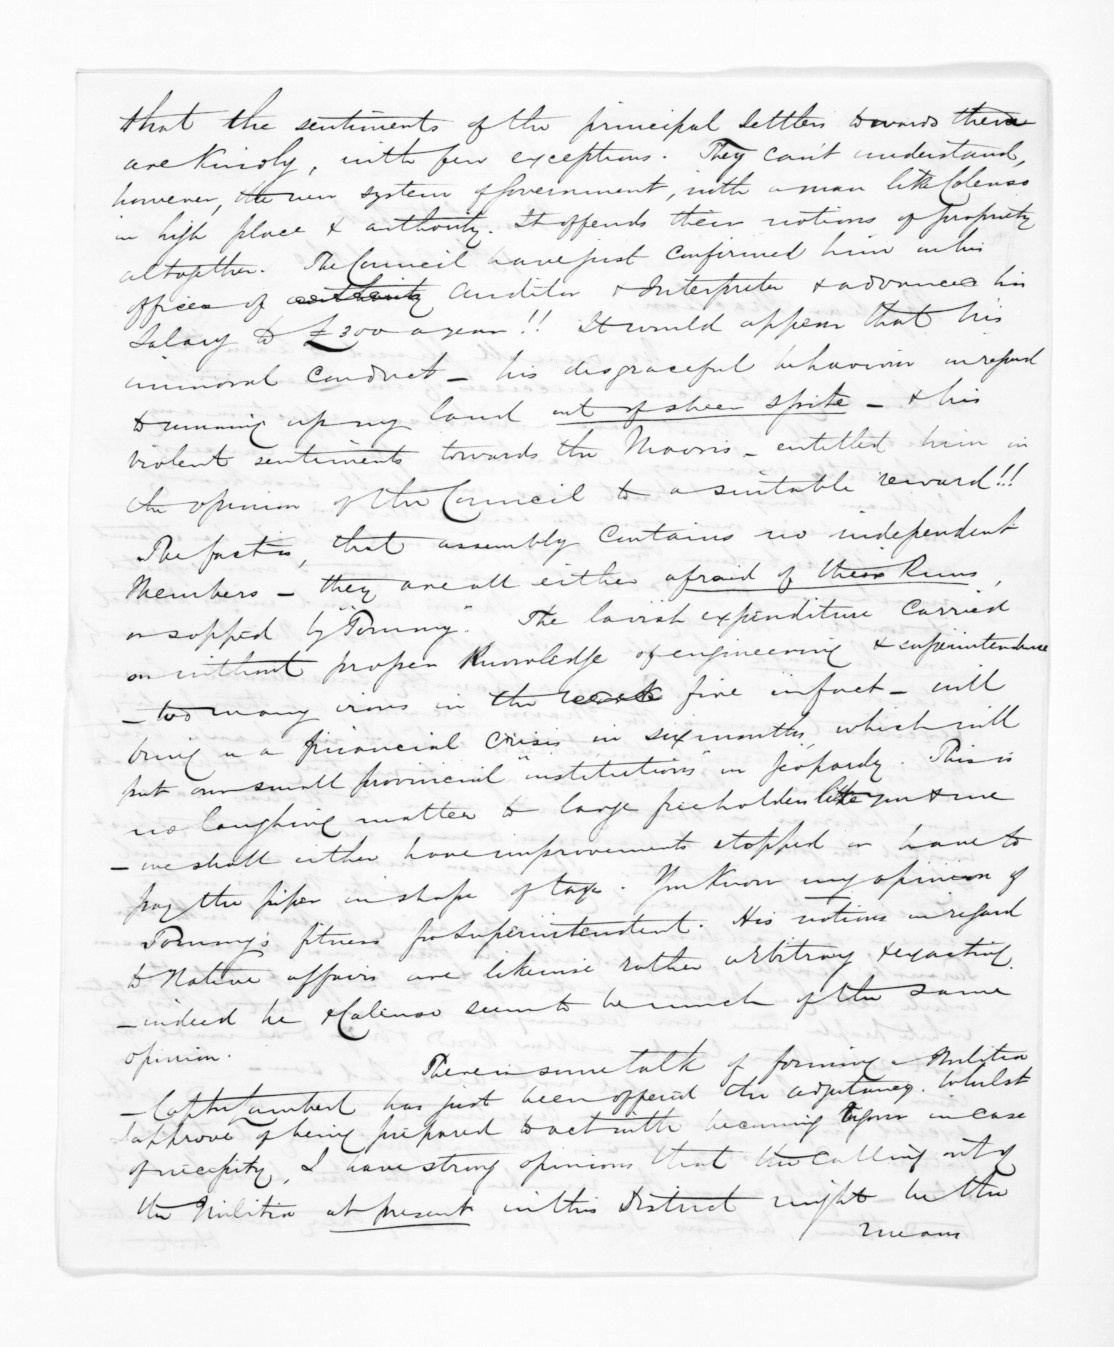 that the sentiments of the principal Settlers towards them
are kindly, with few exceptions. They can't understand,
however, the new system of Government, with a man like Colenso
in high place & authority. It offends their notions of propriety
altogether. The Council have just confirmed him in his
offices of authority Auditor & Interpreter & advanced his
Salary to £300 a year!! It would appear that his
immoral conduct - his disgraceful behaviour in regard
to running up my land out of sheer spite - & his
violent sentiments towards the Maoris - entitled him in
the opinion of the Council to a suitable reward!!
The fact is, that assembly contains no independent
Members - they are all either afraid of their Runs,
or sopped by "Tommy". The lavish expenditure carried
on without proper knowledge of engineering & superintendence
- too many irons in the fire in fact - will
bring in a financial crisis in six months, which will
put our small provincial "institutions" in jeopardy. This is
no laughing matter to large freeholders like you & me
- we shall either have improvements stopped or have to
pay the piper in shape of tax. You know my opinion of
Tommy's fitness for Superintendent. His notions in regard
to Native affairs are likewise rather arbitrary & exacting.
- indeed he & Colenso seem to be much of the same
opinion.
There is some talk of forming a Militia
- Captn Lambert has just been offered the adjutancy. Whilst
I approve of being prepared to act with becoming vigour in case
of necessity, I have strong opinions that the calling out of
the Militia at present in this District might be the
means